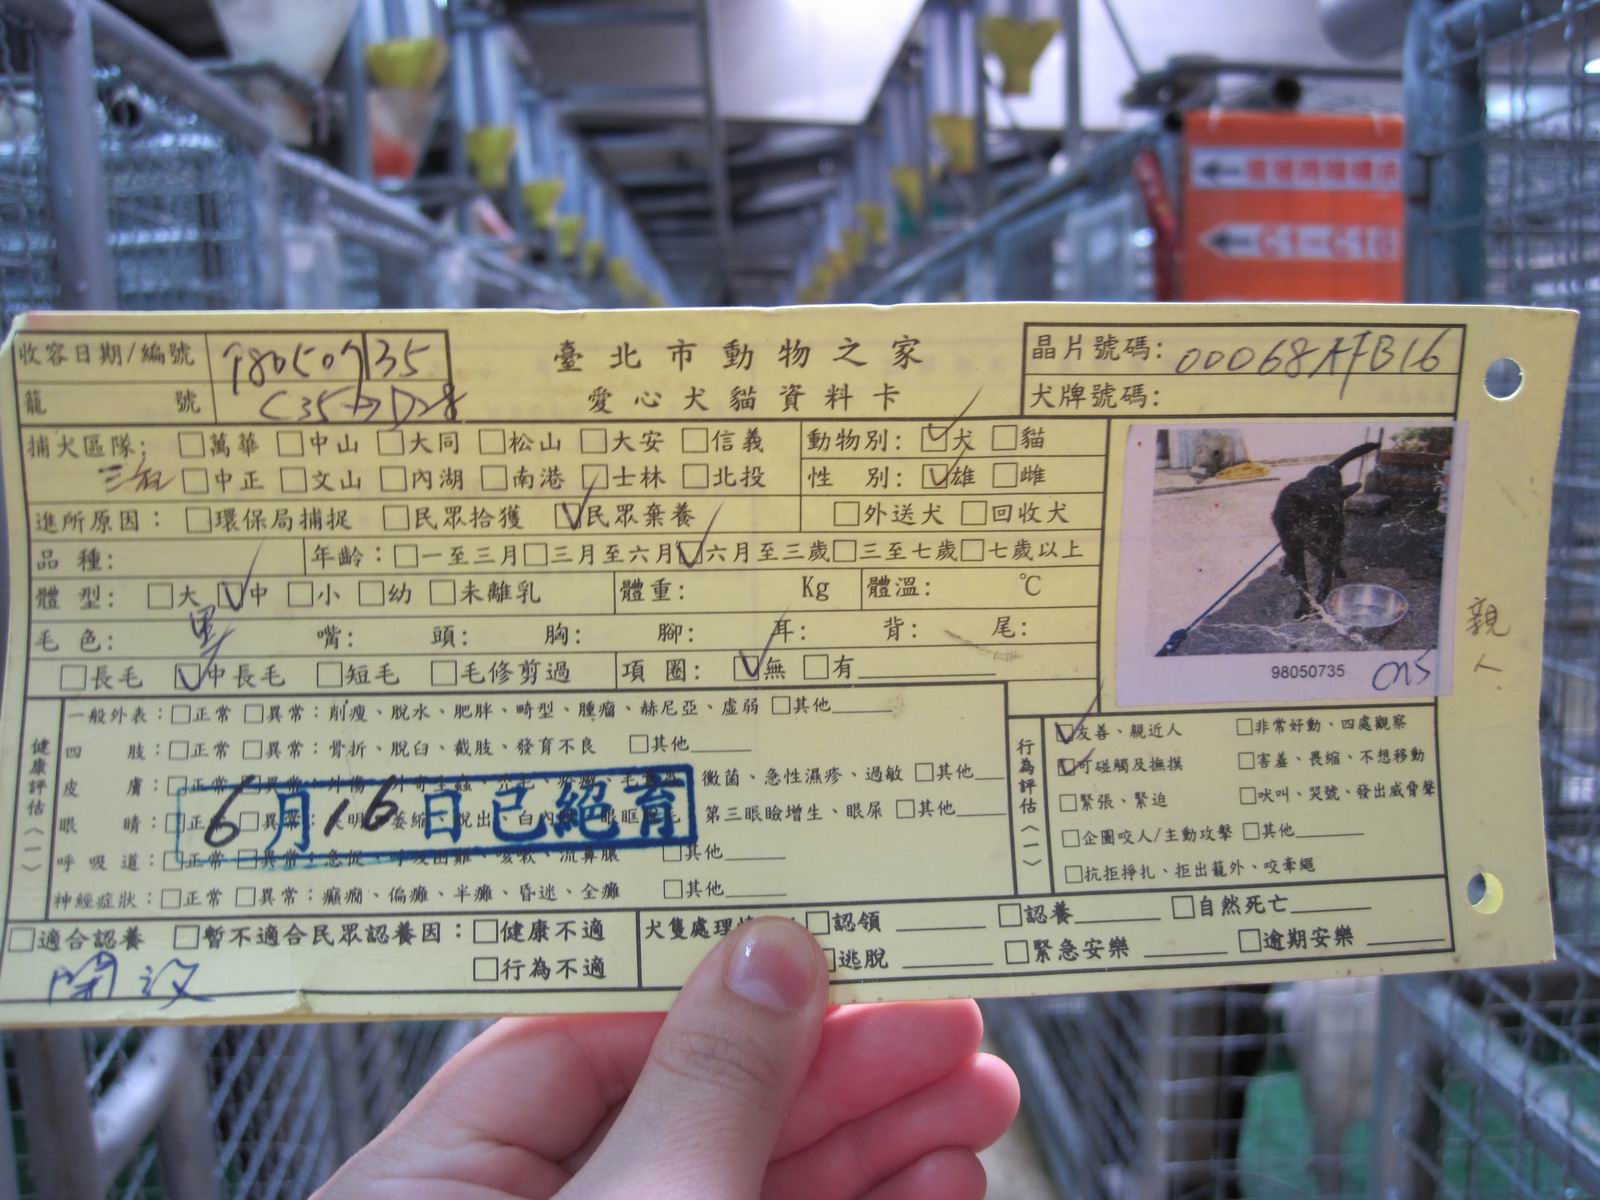 C1-C16
收容日期/編號 980507 35
籠號 C35→D28
臺北市動物之家
愛心犬貓資料卡
晶片號碼: 00068AFB16
犬牌號碼:
捕犬區隊: □萬華 □中山 □大同 □松山 □大安 □信義
□中正 □文山 □內湖 □南港 □士林 □北投
動物別: ☑犬 □貓
性別: ☑雄 □雌
進所原因: □環保局捕捉 □民眾拾獲 ☑民眾棄養 □外送犬 □回收犬
品種: 年齡: □一至三月□三月至六月☑六月至三歲□三至七歲□七歲以上
體型: □大 ☑中 □小 □幼 □未離乳 體重: Kg 體溫: ℃
毛色: 黑 嘴: 頭: 胸: 腳: 耳: 背: 尾:
□長毛 ☑中長毛 □短毛 □毛修剪過 項圈: ☑無 □有
98050735
親人
健康評估(一)
一般外表: □正常 □異常: 削瘦、脫水、肥胖、畸型、腫瘤、赫尼亞、虛弱 □其他
四肢: □正常 □異常: 骨折、脫臼、截肢、發育不良 □其他
皮膚: □正常 □異常: 黴菌、急性濕疹、過敏 □其他
眼睛: □正常 □異常: 第三眼瞼增生、眼屎 □其他
呼吸道: □正常 □異常: 急促、呼吸困難、咳嗽、流鼻膿 □其他
神經症狀: □正常 □異常: 癲癇、偏癱、半癱、昏迷、全癱 □其他
6月16日已絕育
行為評估(一)
☑友善、親近人 □非常好動、四處觀察
☑可碰觸及撫摸 □害羞、畏縮、不想移動
□緊張、緊迫 □吠叫、哭號、發出威脅聲
□企圖咬人/主動攻擊 □其他
□抗拒掙扎、拒出籠外、咬牽繩
□適合認養 □暫不適合民眾認養因: □健康不適
□行為不適
犬隻處理 □認領 □認養 □自然死亡
□逃脫 □緊急安樂 □逾期安樂